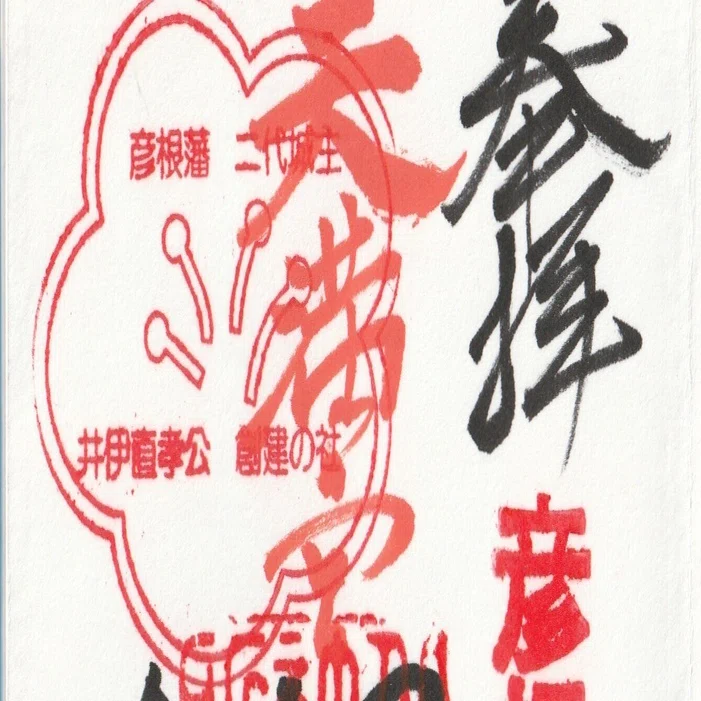 参拝
彦
天満宮
彦根藩 二代城主
井伊直孝公 創建の社